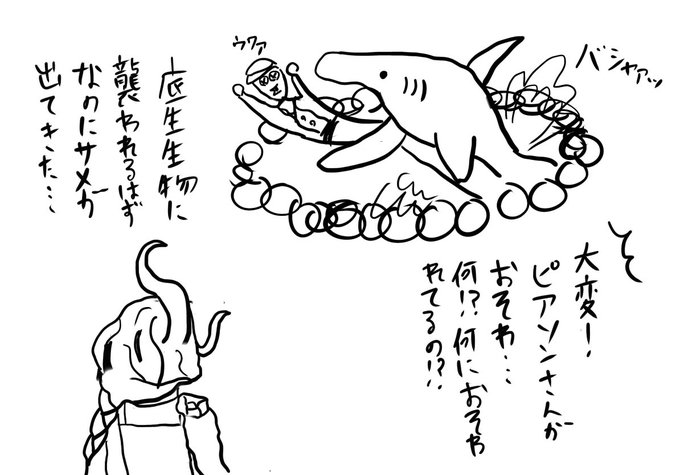 バシャァッ
ウワァ
大変!
ピアソンさんが
おそわ…
何!?何におそわ
れてるの!?
底生生物に
襲われるはず
なのにサメが
出てきた…